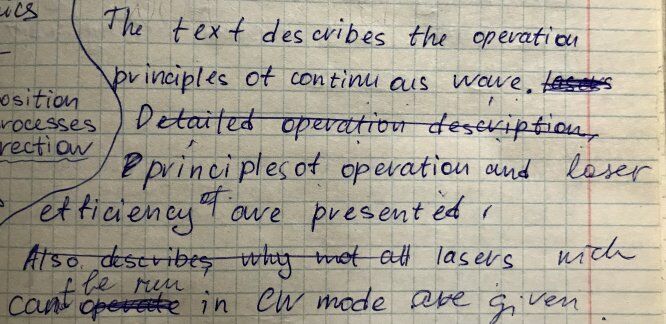 ics
The text describes the operation
principles of continuous wave. lasers
osition
rocesses
rection
Detailed operation description,
principles of operation and laser
efficiency of are presented,
Also describes why not all lasers wich
be run
can't operate in CW mode are given.